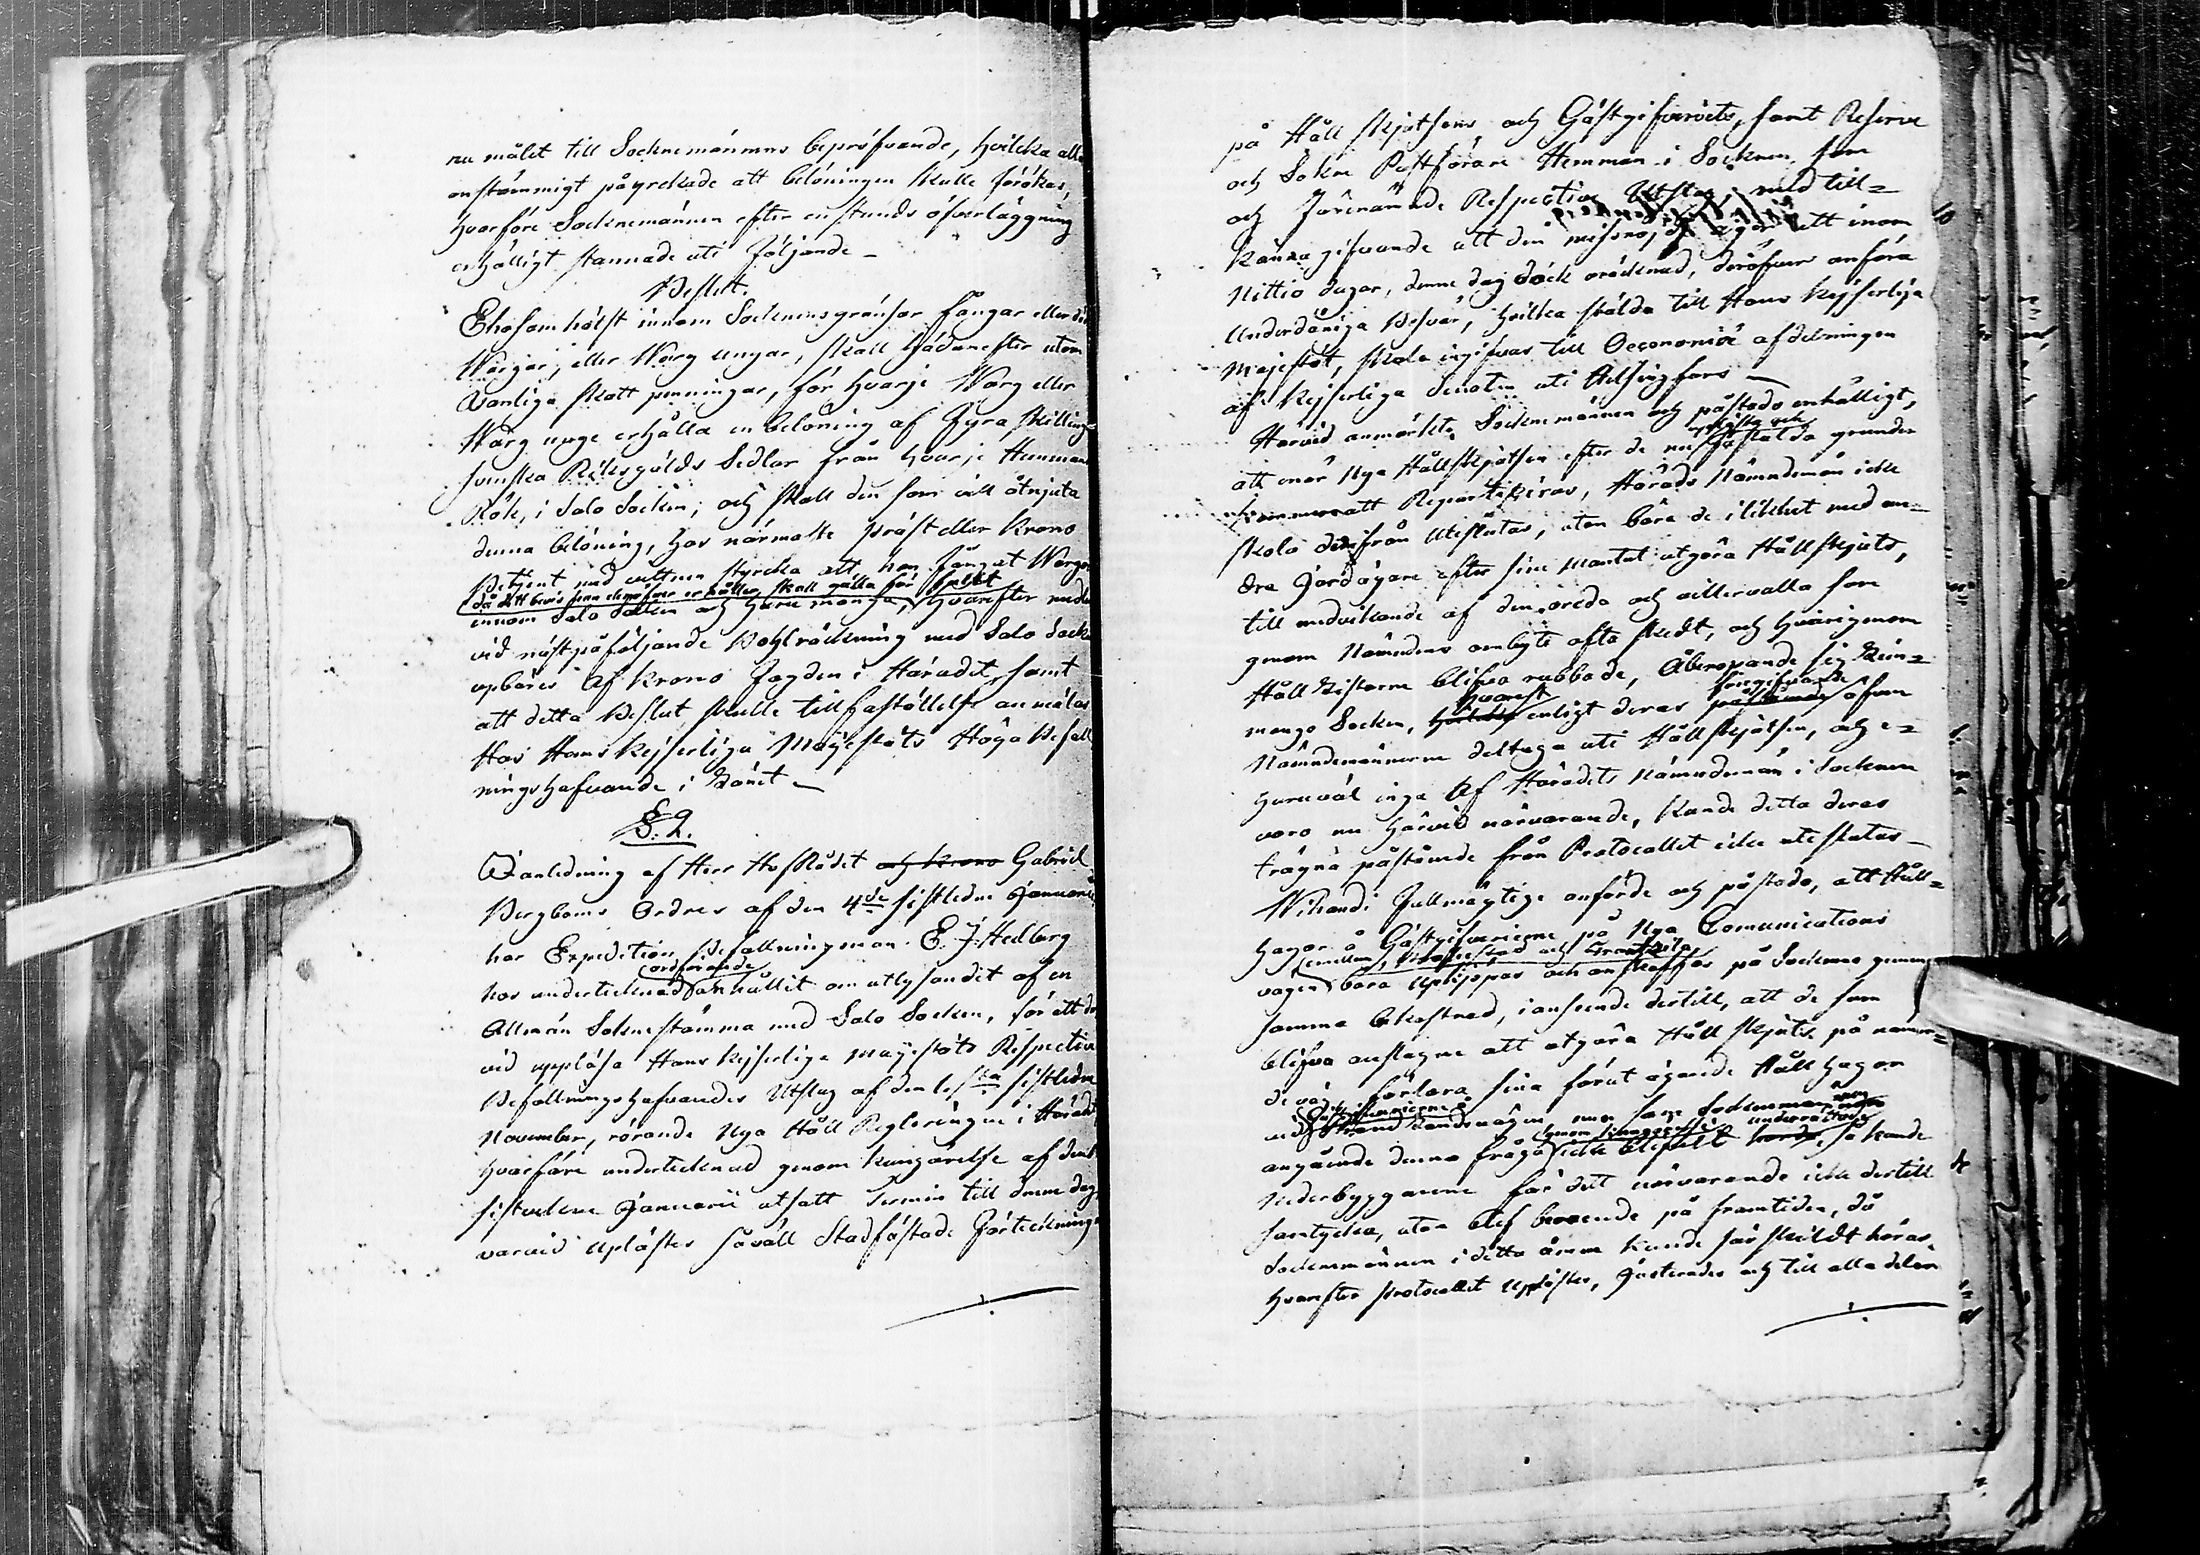 nu målet till Socknemännens bepröfvande, hvilcka alla
enstämmigt påyrckade att belöningen skulle förökas,
hvarföre Socknemännen efter en stunds öfverläggning
enhälligt stannade uti följande –
Beslut.
Ehosomhälst innom Socknens gränsor fångar eller
Wargar, eller Warg ungar, skall hädanefter utom
Vanliga skatt penningar, för hvarje Warg eller
Warg unge erhålla en belöning af Fyra skilling
svenska Riksgälds Sedlar från hvarje Hemman
Rök, i Salo Socken; och skall den som vill åtnjuta
denna belöning, hos närmaste Präst eller Krono
Betjent med vittnen styrcka att han fångat Wargen
då ett bevis som deröfver erhålles skall gälla för fullt
innom Salo Socken och huru många, hvarefter medlen
vid nästpåföljande Vohlräckning med Salo Sockn
upbäres af Krono Fogden i Häradet, samt
att detta Beslut skulle till faställelse anmälas
Hos Hans Kejserliga Mayestäts Höga Befall
ningshafvande i Länet –
§. 2.
I anledning af Herr HofRådet och Krono Gabriel
Bergboms Ordres af den 4de sistledne Januarii
har Expeditions Befallningsman E. J. Hedberg
ordförande
hos undertecknad anhållit om utlysandet af en
Allmän Soknestämma med Salo Socken, för att der
vid uppläsa Hans Kejserliga Mayestäts Respective
Befallningshafvandes Utslag af den 1sta sistledne
November, rörande Nya Håll Regleringen i Häradet
hvarföre undertecknad genom kungörelse af den
sistvekne Januarii utsatt Termin till denne dag,
varvid uplästes såväll Stadfästade Förteckningen

på Håll skjutsens, och Gästgifveriets, samt Reserve
och Sokne Postförare Hemman i Socknen, som
och förenämde Respective Utslag, med till=
kännagifvande att den missnöjde äger att inom
Nittio dagar, denne dag dock oräcknad, deröfver anföra
Underdåniga Besvär, hvilka stälda till Hans Kejserliga
Majestät, skola ingifvas till Oeconomiæ afdelningen
af Kejserliga Senaten uti Helsingfors –
Härvid anmärkte Socknemännen och påstodo enhälligt,
upläste och
att när Nya Hållskjutsen efter de nu faststälda grunder
att Repartiseras, Härads Nämndemän icke
skola derifrån uteslutas, utan böra de i likhet med an=
dra Jordägare efter sina Mantal utgöra Hållskjuts,
till undvikande af den oreda och villervalla som
genom Nämndens ombyte ofta skedt, och hvarigenom
Håll Listorne blifva rubbade, Åberopande sig Lim=
hvarest föregifvande
mingo Socken, hvilcka enligt deras påstående äfven
Nämndemännerne deltaga uti Hållskjutsen, och e=
huruväl inga af Häradets Nämndemän i Socknen
voro nu härvid närvarande, kunde detta deras
trägna påstående från Protocollet icke uteslutas –
Wihandi Fullmägtige anförde och påstodo, att Håll=
hagar å Gästgifverierne på Nya Comunications
emillan Brahestad och Frantsila
vägen böra uptippas och anskaffas på Socknens gemen
samma bekostnad, i anseende dertill, att de som
blifva anslagne att utgöra Håll skjuts på nämn=
de väg, förlora sina förut ägande Håll hagar
Gästgifverierne å
vid Strand Landsvägen, men som Sockenemännen
genom kungörelse underrättade
angående denna fråga icke blifvit hörde, så kunde
Nederbyggarne för det närvarande icke dertill
samtycka, utan blef beroende på framtiden, då
Sockenmännen i detta ämne kunde särskildt höras,
hvarefter Protocollet Uplästes, Justerades och till alla delar